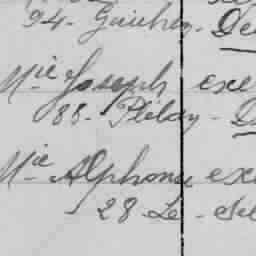 94 - Guichen - De
Mie Joseph exe
88 - Plélan - D
Mie Alphonse exe
- 28 - Le - Sel